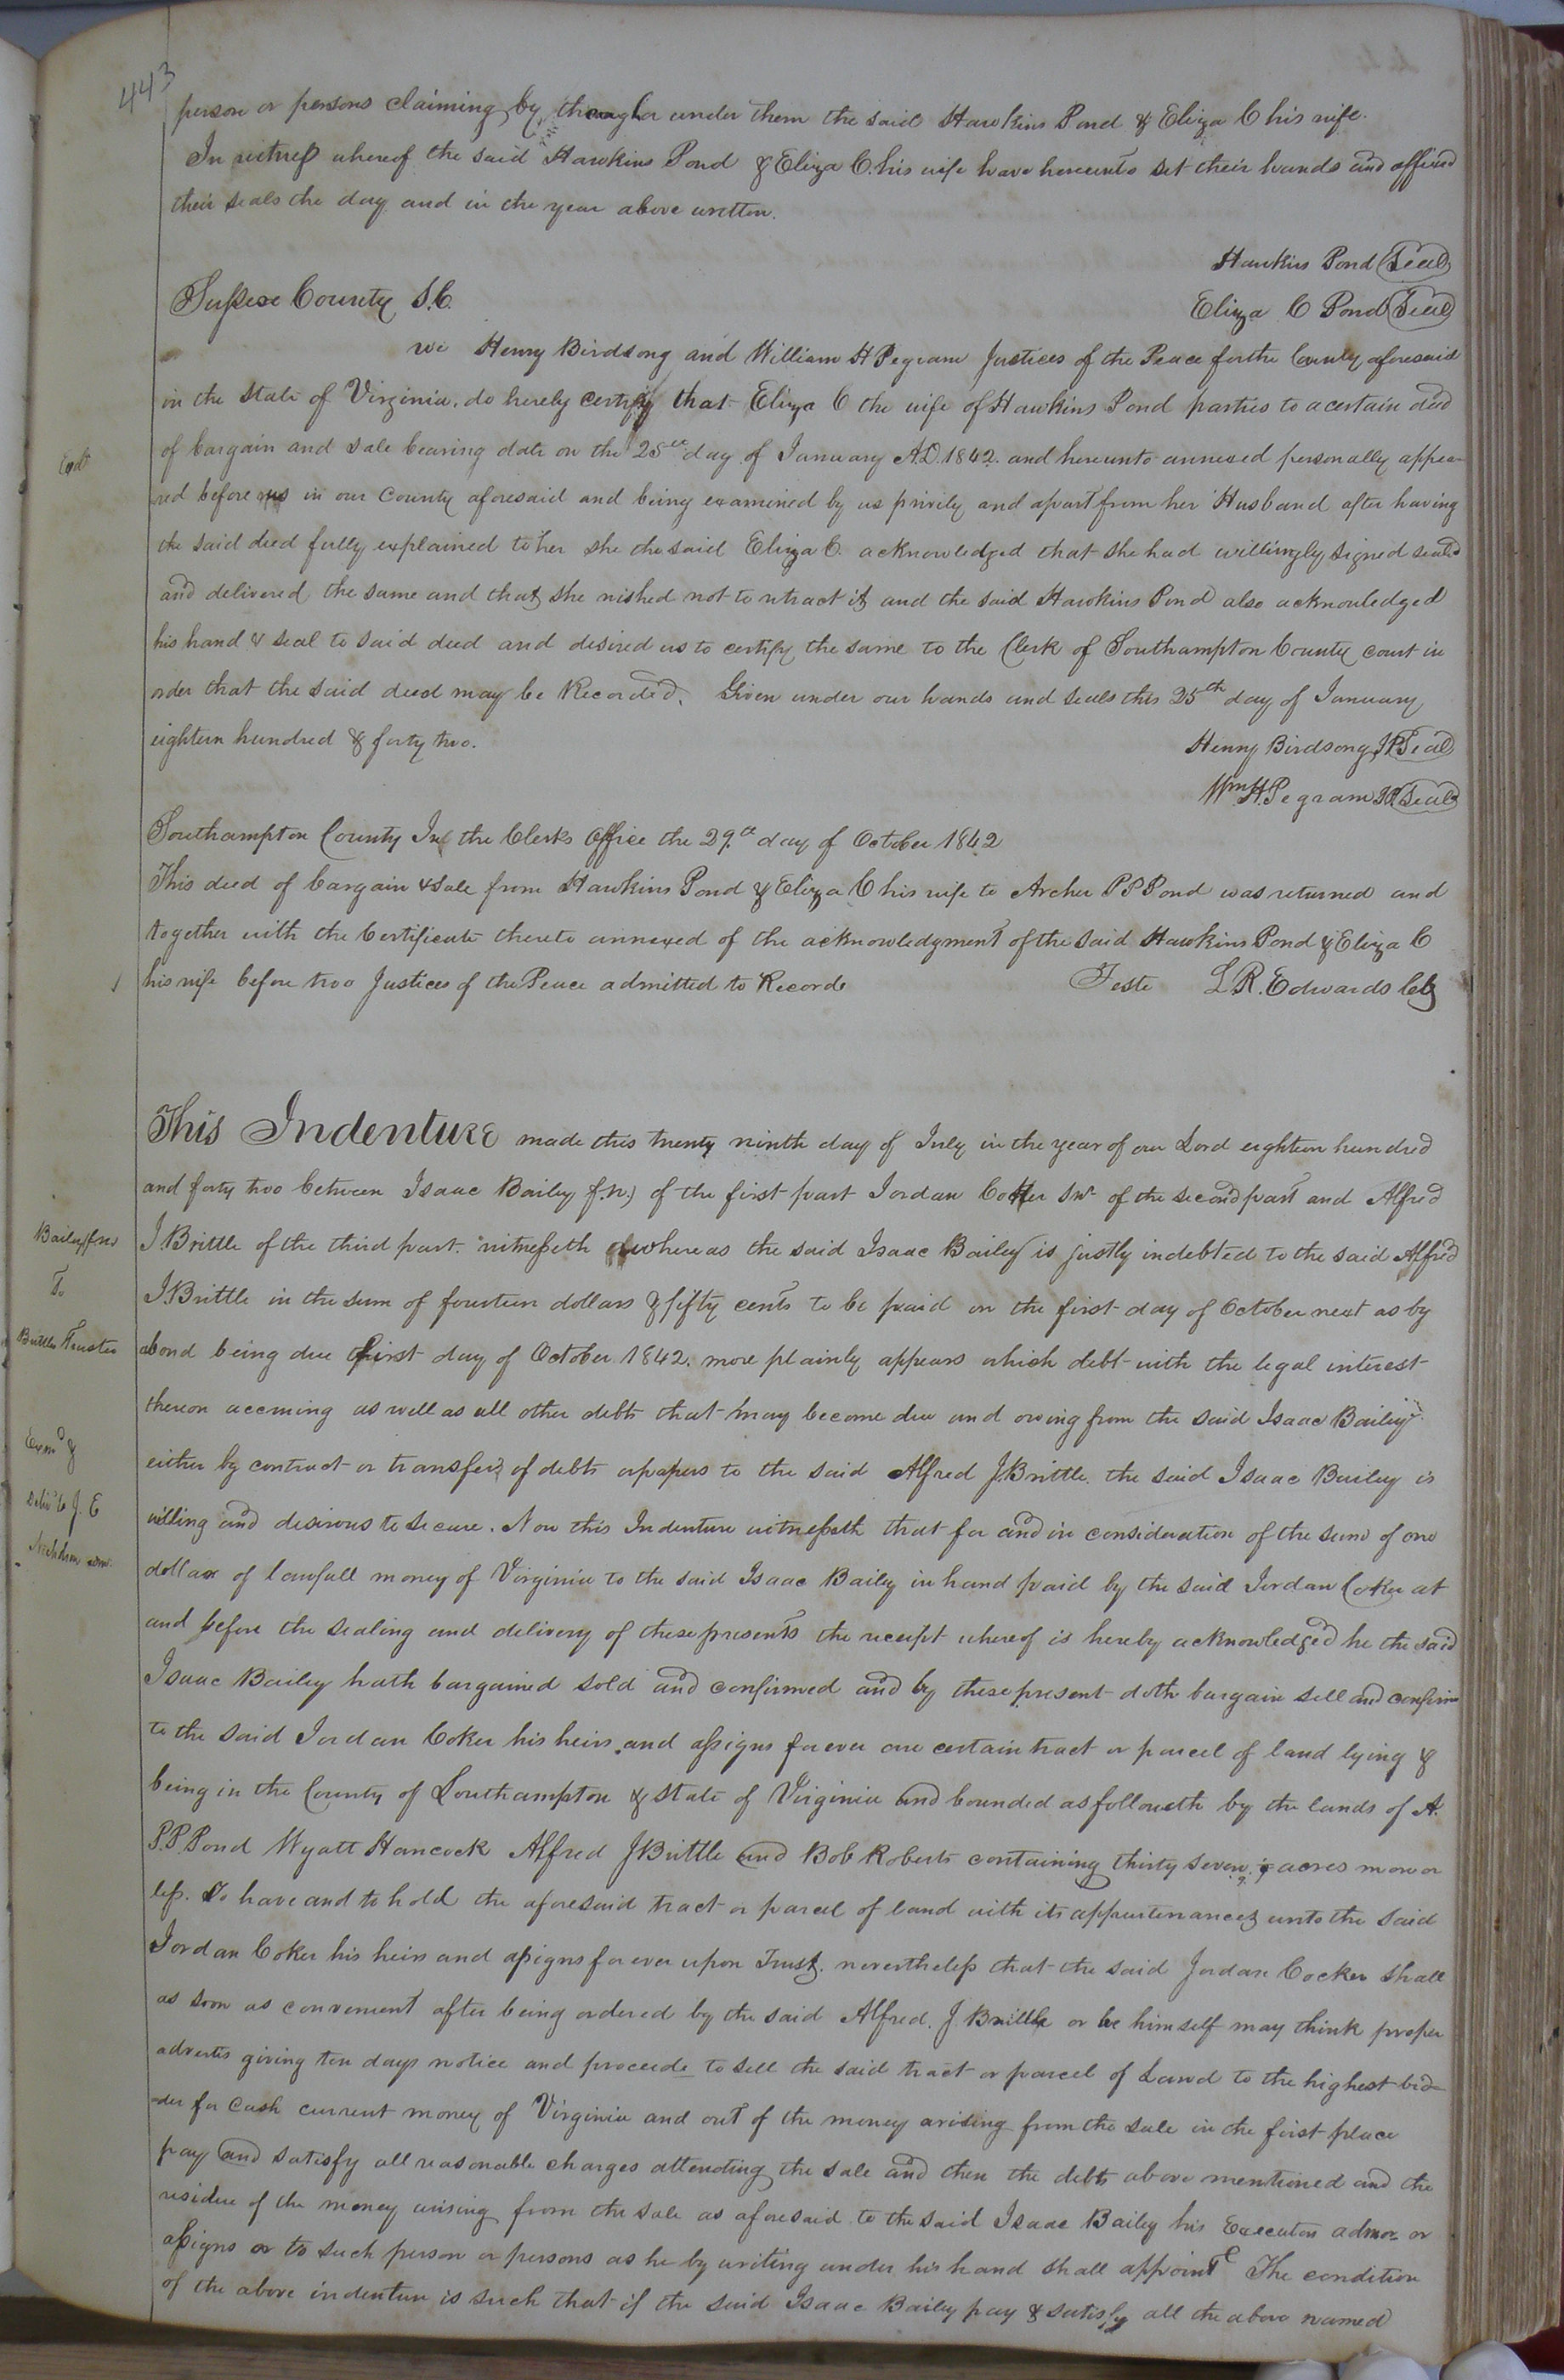 443
person or persons claiming by, through or under them the said Hawkins Pond & Eliza C his wife.
In witness whereof the said Hawkins Pond & Eliza C. his wife have hereunto set their hands and affixed
their seals the day and in the year above written.
Hawkins Pond Seal
Eliza C Pond Seal
Sussex County S.C.
we Henry Birdsong and William H Pegram Justices of the Peace for the County aforesaid
in the State of Virginia, do hereby certify that Eliza C the wife of Hawkins Pond parties to a certain deed
of bargain and sale bearing date on the 25th day of January A.D. 1842. and hereunto annexed personally appea-
red before us in our County aforesaid and being examined by us privily and apart from her Husband after having
the said deed fully explained to her she the said Eliza C. acknowledged that she had willingly signed sealed
and delivered the same and that she wished not to retract it and the said Hawkins Pond also acknowledged
his hand & seal to said deed and desired us to certify the same to the Clerk of Southampton County court in
order that the said deed may be Recorded. Given under our hands and seals this 25th day of January
eighteen hundred & forty two.
Henry Birdsong J.P Seal
Wm H. Pegram JP Seal
Southampton County In the Clerks Office the 29th day of October 1842
This deed of bargain & sale from Hawkins Pond & Eliza C his wife to Archer P P Pond was returned and
together with the Certificate thereto annexed of the acknowledgment of the said Hawkins Pond & Eliza C
his wife before two Justices of the Peace admitted to Record
Teste L. R. Edwards Clk
Bailey (fn)
To
Brittles Trustee
Exmd &
Delivd to J. E
This Indenture made this twenty ninth day of July in the year of our Lord eighteen hundred
and forty two between Isaac Bailey f.n.) of the first part Jordan Coker Snr of the second part and Alfred
J. Brittle of the third part. witnesseth whereas the said Isaac Bailey is justly indebted to the said Alfred
J. Brittle in the sum of fourteen dollars & fifty cents to be paid on the first day of October next as by
abond being due first day of October 1842. more plainly appears which debt with the legal interest
thereon accruing as well as all other debts that may become due and owing from the said Isaac Bailey
either by contract or transfers of debts or papers to the said Alfred J. Brittle. the said Isaac Bailey is
willing and desirous to secure. Now this Indenture witnesseth that for and in consideration of the sum of one
dollar of lawfull money of Virginia to the said Isaac Bailey in hand paid by the said Jordan Coker at
and before the sealing and delivery of these presents the receipt whereof is hereby acknowledged he the said
Isaac Bailey hath bargained sold and confirmed and by these present doth bargain sell and confirm
to the said Jordan Coker his heirs and assigns forever one certain tract or parcel of land lying &
being in the County of Southampton & State of Virginia and bounded as followeth by the lands of A.
P.P. Pond Wyatt Hancock Alfred J Brittle and Bob Roberts containing thirty seven acres more or
less. To have and to hold the aforesaid tract or parcel of land with its appurtenances unto the said
Jordan Coker his heirs and assigns forever upon Trust. nevertheless that the said Jordan Cocker shall
as soon as convenient after being ordered by the said Alfred. J. Brittle or he himself may think proper
advertis giving ten days notice and proceede to sell the said tract or parcel of Land to the highest bid-
-der for Cash current money of Virginia and out of the money arising from the sale in the first place
pay and satisfy all reasonable charges attending the sale and then the debts above mentioned and the
residue of the money arising from the sale as aforesaid to the said Isaac Bailey his Executors admor or
assigns or to such person or persons as he by writing under his hand shall appoint The condition
of the above indenture is such that if the said Isaac Bailey pay & satisfy all the above named